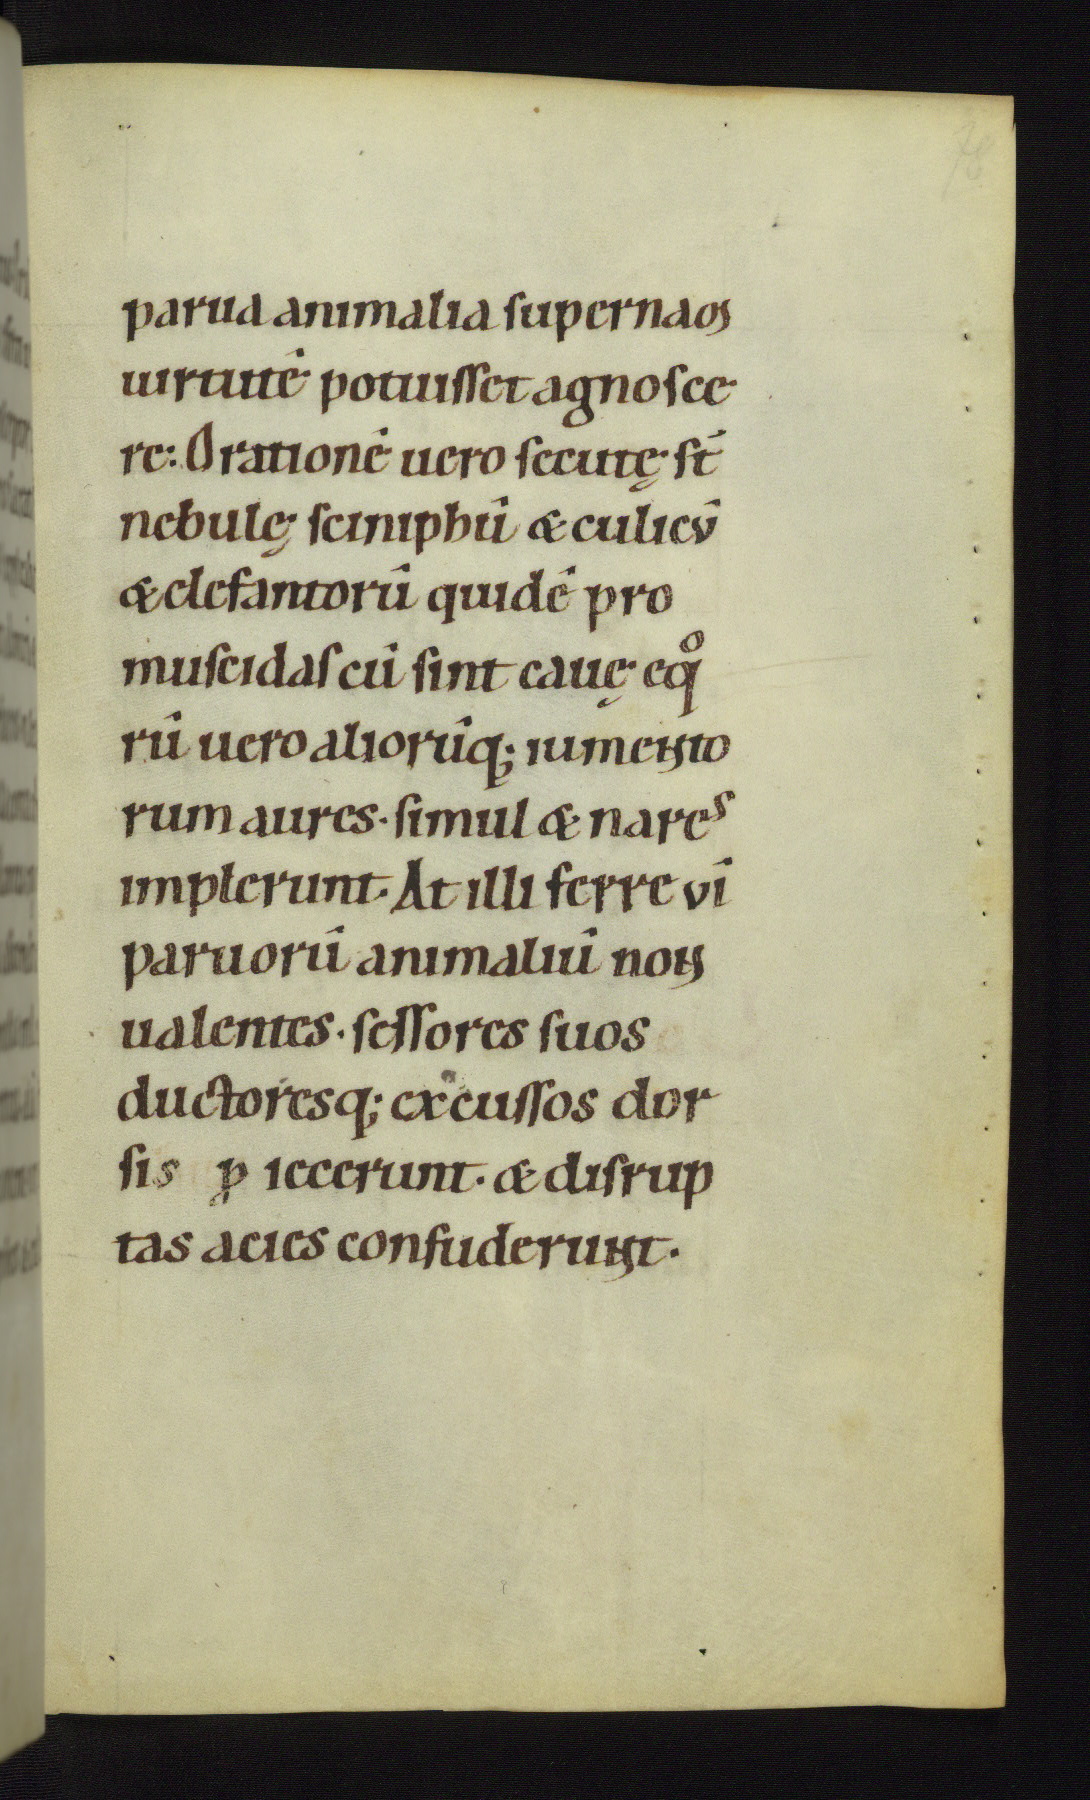 parua animalia supernaꝫ
uirtutē potuisset agnosce
re: Orationē uero secutę st̄
nebulę sciniphū & culicū
& elefantorū quidē pro
muscidas cū sint cauę eqͦ
rū uero aliorūq; iumento
rum aures. simul & nares
implerunt. At illi ferre vī
paruorū animaliū non
ualentes. sessores suos
ductoresq; excussos dor
sis ꝓ iecerunt. & disrup
tas acies confuderunt.